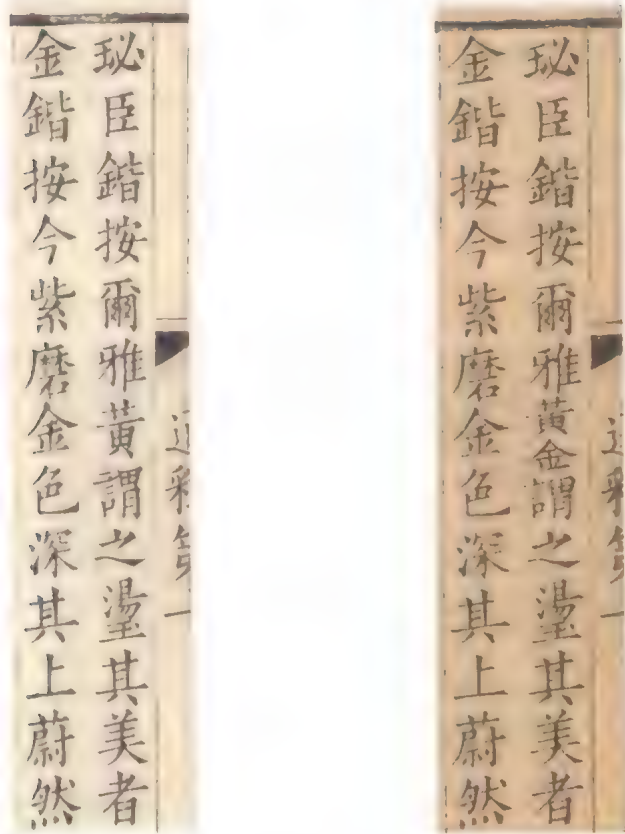 珌臣鍇按爾雅黃金謂之璗其美者
金鍇按今紫磨金色深其上蔚然
珌臣鍇按爾雅黃謂之璗其美者
金鍇按今紫磨金色深其上蔚然